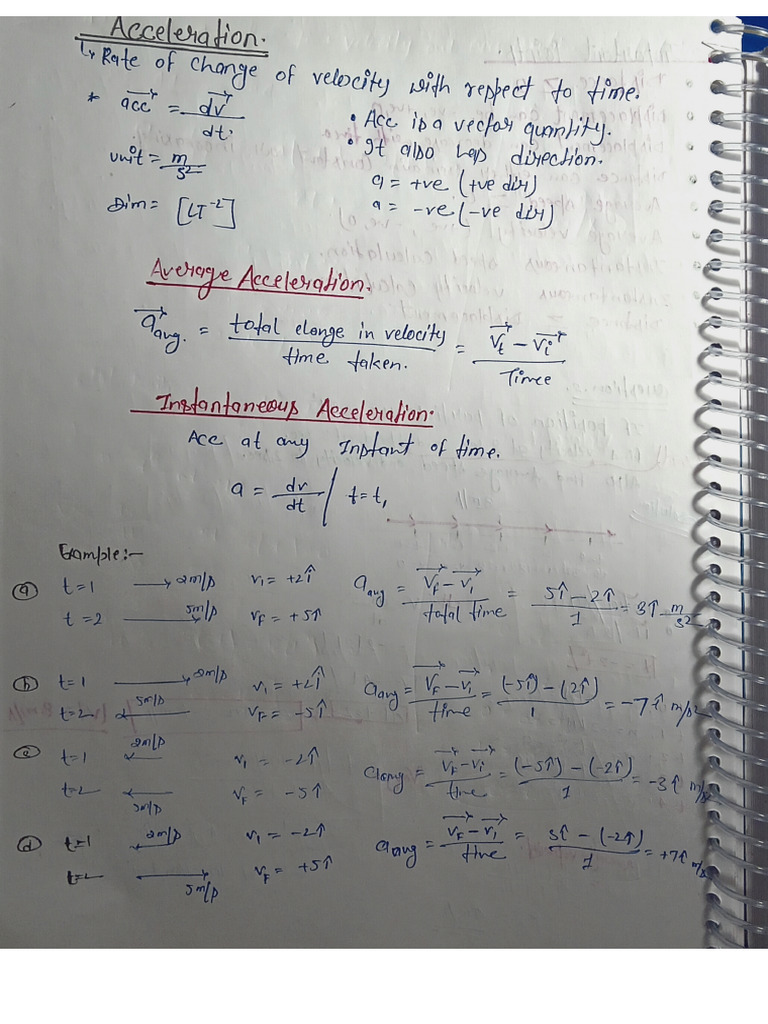 Acceleration.
↳ Rate of change of velocity with respect to time.
* acc = dv/dt.
• Acc is a vector quantity.
• It also has direction.
unit = m/s²
a = +ve (+ve dir)
Dim = [LT⁻²]
a = -ve (-ve dir)
Average Acceleration.
a avg. = total change in velocity / time taken. = Vt - Vi / Timee
Instantaneous Acceleration.
Acc at any Instant of time.
a = dv/dt / t=t,
Example:-
(a) t=1 → 2m/s v₁ = +2î a avg = VF - Vi / total time = 5î - 2î / 1 = 3î m/s²
t=2 5m/s VF = +5î
(b) t=1 → 2m/s v₁ = +2î a avg = VF - Vi / time = (-5î) - (2î) / 1 = -7î m/s²
t=2 ← 5m/s VF = -5î
(c) t=1 ← 2m/s v₁ = -2î a avg = VF - Vi / time = (-5î) - (-2î) / 1 = -3î m/s²
t=2 ← 5m/s VF = -5î
(d) t=1 ← 2m/s v₁ = -2î a avg = VF - Vi / time = 5î - (-2î) / 1 = +7î m/s
t=2 → 5m/s VF = +5î